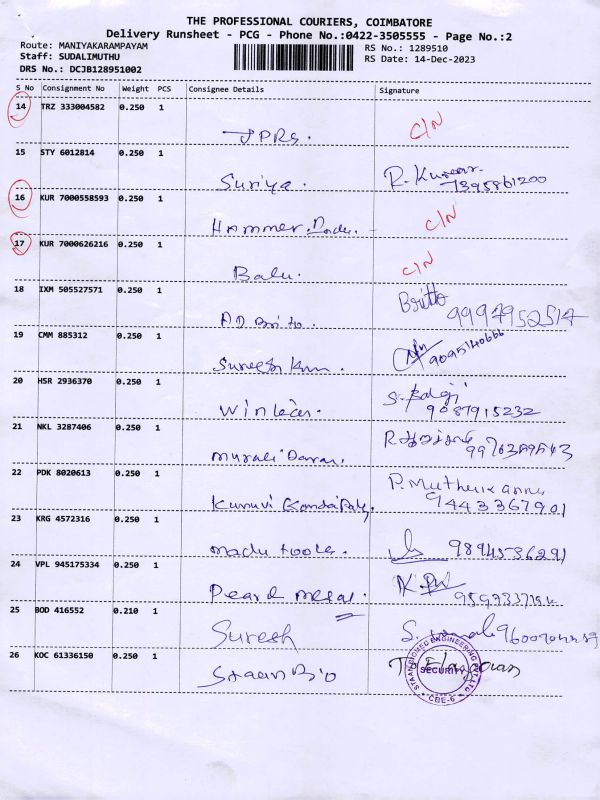 THE PROFESSIONAL COURIERS, COIMBATORE
Delivery Runsheet - PCG - Phone No.:0422-3505555 - Page No.:2
Route: MANIYAKARAMPAYAM RS No.: 1289510
Staff: SUDALIMUTHU RS Date: 14-Dec-2023
DRS No.: DCJB128951002
S No Consignment No Weight PCS Consignee Details Signature
14 TRZ 333004582 0.250 1
JPRS. C/N
15 STY 6012814 0.250 1
Suriya. R. Kumar.
7395861200
16 KUR 7000558593 0.250 1
Hammer. C/N
17 KUR 7000626216 0.250 1
Balu. C/N
18 IXM 505527571 0.250 1
AD Brito. Britto
9997952517
19 CMM 885312 0.250 1
Suresh Kum. 9095140666
20 HSR 2936370 0.250 1
S. Balaji
9087915232
21 NKL 3287406 0.250 1
22 PDK 8020613 0.250 1
P. Muthukannu
9443367901
23 KRG 4572316 0.250 1
Madu tools. 9894536291
24 VPL 945175334 0.250 1
Pearl metal.
25 BOD 416552 0.210 1
Suresh
26 KOC 61336150 0.250 1
Staan Bio T. Elangovan
STAAN BIOMED ENGINEERING PVT LTD
SECURITY
CBE-6